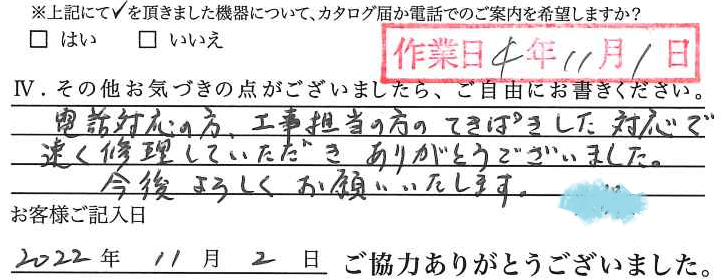 ※上記にて✓を頂きました機器について、カタログ届か電話でのご案内を希望しますか？
□ はい □ いいえ
作業日 4年 11月 1日
Ⅳ．その他お気づきの点がございましたら、ご自由にお書きください。
電話対応の方、工事担当の方のてきぱきした対応で
速く修理していただき ありがとうございました。
今後よろしくお願いいたします。
お客様ご記入日
2022 年 11 月 2 日 ご協力ありがとうございました。